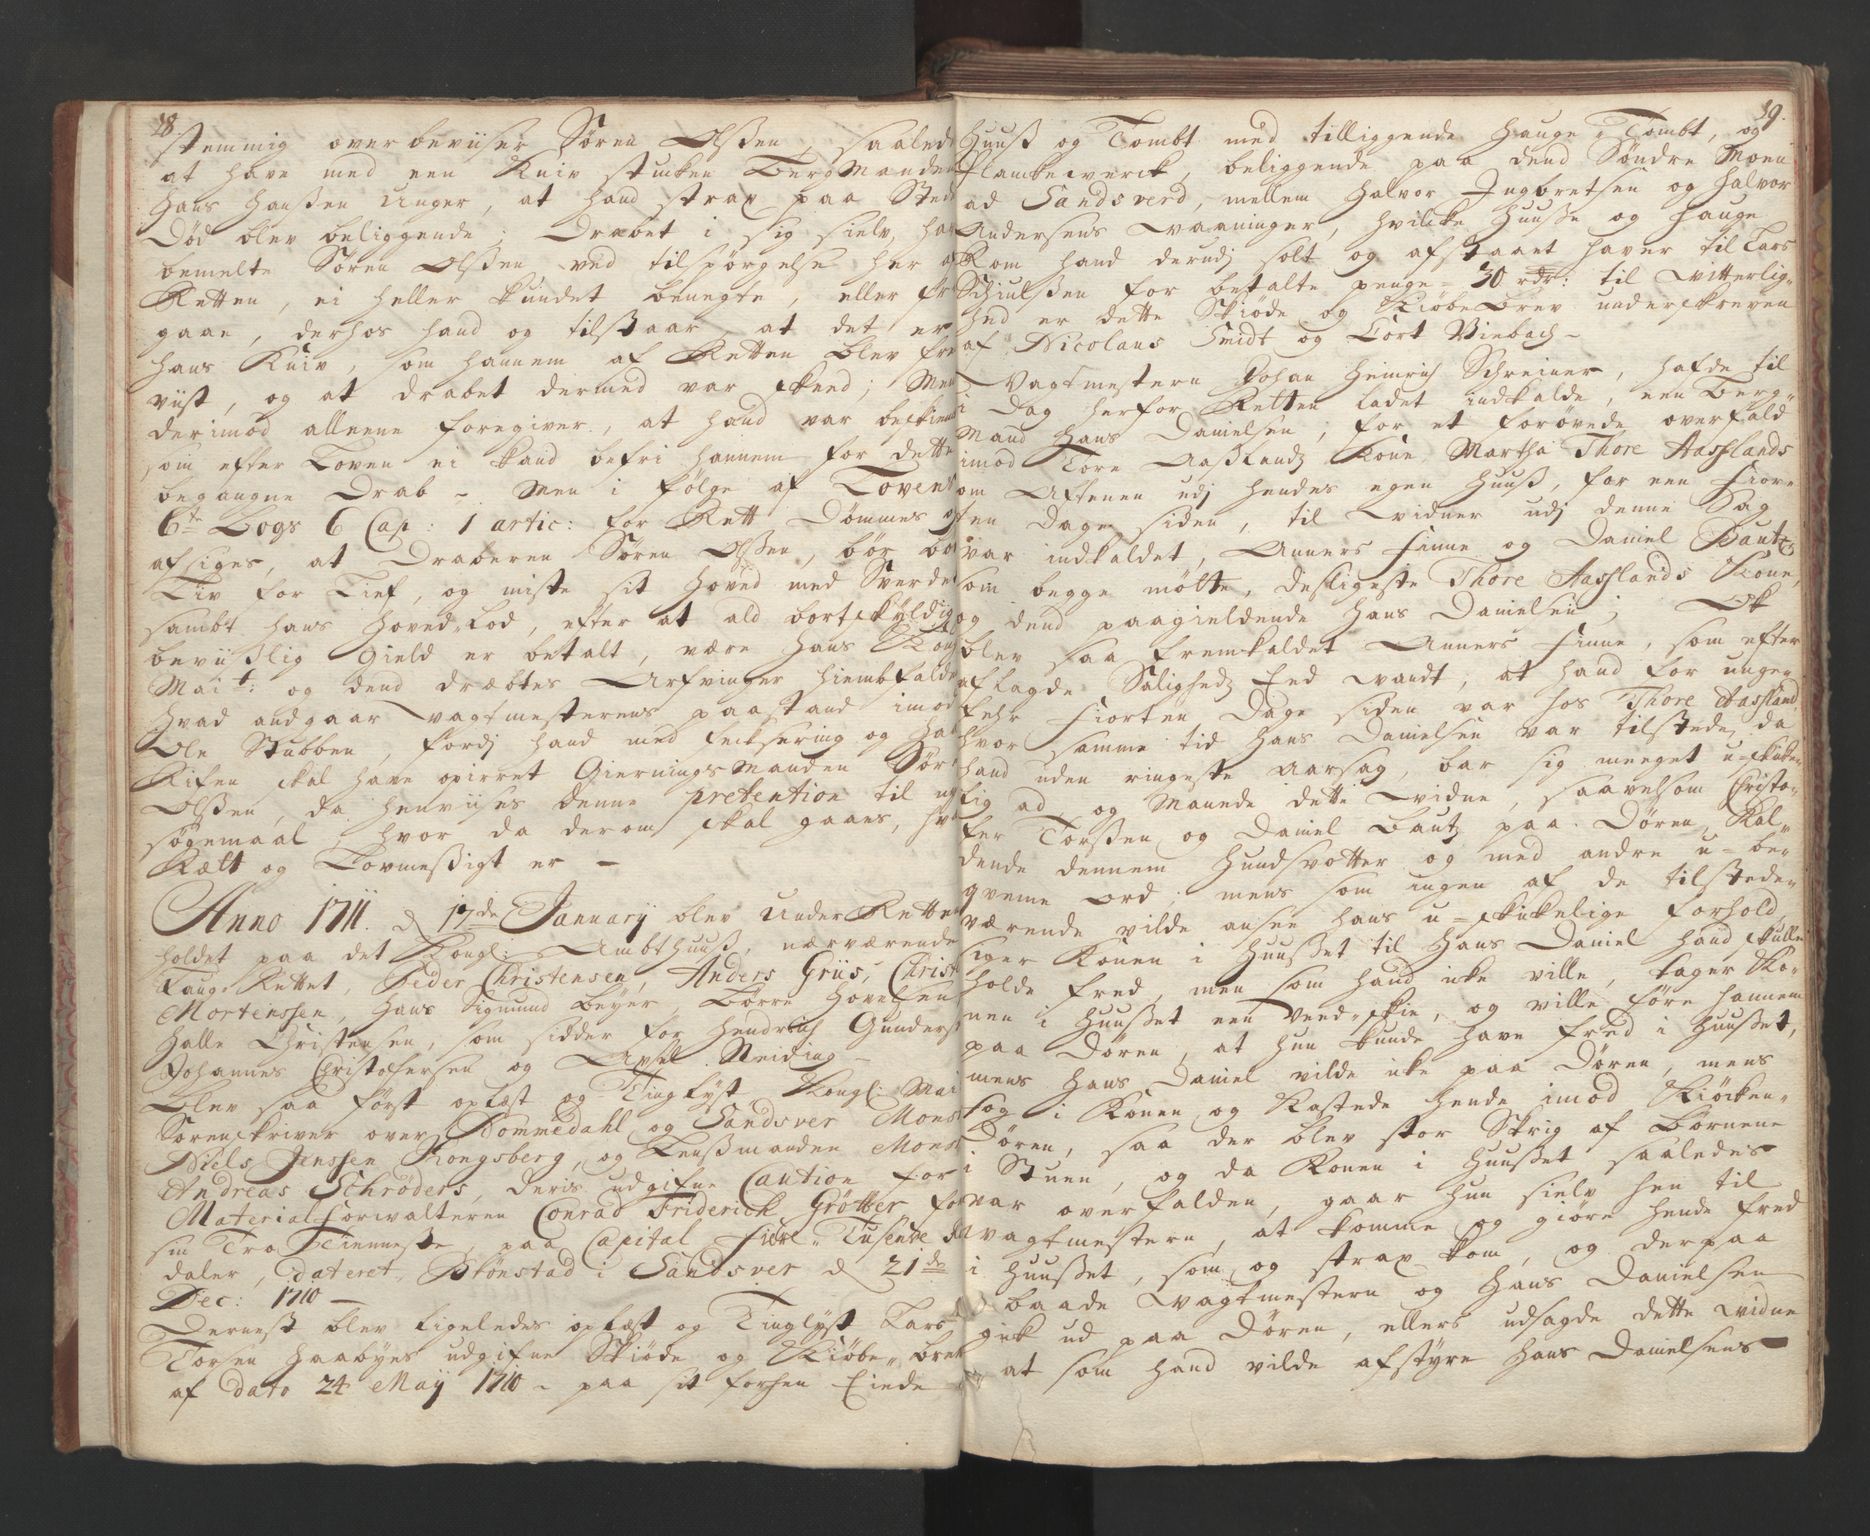 38.
stemmig overbeviiser Søren Olßen, saaled
at have med een Kniv stucken BergManden
Hans Hanßen Unger, at hand strax paa Sted
Død blev beliggende; Drabet i sig sielv, ha
bemelte Søren Olßen ved tilspørgelse her
Retten, ei heller kundet benegte, eller fr
gaae, derhos hand og tilstaar, at det er
hans Kniv, som hannem af Retten blev fre
viist, og at drabet dermed var skeed; Men
derimod alleene foregiver, at hand var beskien
som efter Loven ei kand befri hannem for dette
begangne Drab - Men i følge af Lovens
6te Bogs 6 Cap: 1 artic: for Rett Dømmes og
afsiges, at Draberen Søren Olßen, bør bø
Liv for Lief, og miste sit Hoved med Sverde
sambt hans Hoved-Lod, efter at ald bortskyldig
beviißlig Gield er betalt, være Hans Kong
Mait: og dend dræbtes Arfvinger hiembfalde
Hvad andgaar Vagtmesterens paastand imod
Ole Stubben, fordj hand med fecksering og
Kifen skal have opirret GierningsManden Sør
Olßen, da henviises denne pretention til
søgemaal, hvor da derom skal gaaes, hv
Rætt og Lovmeßigt er -
Anno 1711. d 17de Januarij blev Under Retten
holdet paa det Kongl: Ambthuuß, nærværende
Laug-Rettet, Peder Christensen, Anders Griis, Christ
Mortenssen, Hans Sigmund Beyer Børre Hovelsen
Halle Christensen, som sidder for Hendrich Gunders
Johannes Christofersen og Axel Neiding -
Blev saa først oplæst og Tinglyst Kongl: Mai
Sorenskriver over Nommedahl og Sandsver Mons
Niels Jenssen Kongsberg, og Lensmanden Mons
Andreas Schrøders, deris udgifne Caution for
Material-Forvalteren Conrad Friderick Grøtter, fo
sin Tro Tienneste, paa Capital Fiire-Tusende
daler, dateret, Skønstad i Sandsver d 21de
Dec: 1710 -
Dernest blev ligeledes oplæst og Tinglyst Lars
Torsen Haabyes udgifne Skiøde og Kiøbe-brek
af dato 24 Maij 1710 - paa sit forhen Eiede
39.
Huuß og Tombt med tilliggende Hauge-Tombt, og
Planckeverck, beliggende paa dend Søndre Moen
ad Sandsverd, mellem Halvor Ingbretsen og Halvor
Andersens vaaninger, hvilcke Huuße og Hauge
Rom hand derudj solt og afstaaet haver til Lars
Schiulßen for betalte penge - 30 rdr: til vitterlig-
hed er dette Skiøde og KiøbeBrev underskreven
af Nicolaus Smidt og Cort Viebach -
Vagtmestern Johan Heinrich Schreiner, hafde til
i Dag herfor Retten ladet indkalde, een Berg-
Mand Hans Danielsen, for et forøvede overfald
imod Tore Aaßlands Kone Martha Thore Aasslands
om Aftenen udj hendes egen Huuß, for een Fior-
ten Dage siden, til Vidner udj denne Sag
var indkaldet, Anners Finne og Daniel Bautz
som begge mødte, desligeste Thore Aasslands Kone,
og dend paagieldende Hans Danielsen; Ok
blev saa fremkaldet Anners Finne, som efter
aflagde Saligheds Eed vandt, at hand for unge-
fehr Fiorten Dage siden var hos Thore Aassland
hvor samme tid Hans Danielsen var tilstede, da
hand uden ringeste Aarsag, bar sig meeget u-skicke-
lig ad og Manede dette Vidne, saavelsom Christo-
fer Torßen og Daniel Bautz paa Døren, Kal-
dende dennem Hundsvotter og med andre u-be-
qveme ord, mens som ingen af de tilstede-
værende vilde ansee hans u-skikelige forhold,
siger Konen i Huußet til Hans Daniel hand skulle
holde fred, men som hand icke ville, tager Ko-
nen i Huußet een Veed-skie, og ville føre hannem
paa Døren, at hun kunde have fred i Huußet,
mens Hans Daniel vilde icke paa Døren, mens
tog i Konen og kastede hende imod Kiøcken-
Døren, saa der blev stor Skrig af Børnene
i Stuen, og da Konen i Huußet saaledes
var overfalden, gaar hun sielv hen til
Vagtmestern, at komme og giøre hende fred
i Huußet, som og strax kom, og derpaa
baade Vagtmestern og Hans Danielsen
gik ud paa Døren, ellers udsagde dette Vidne
at som hand vilde afstyre Hans Danielsens